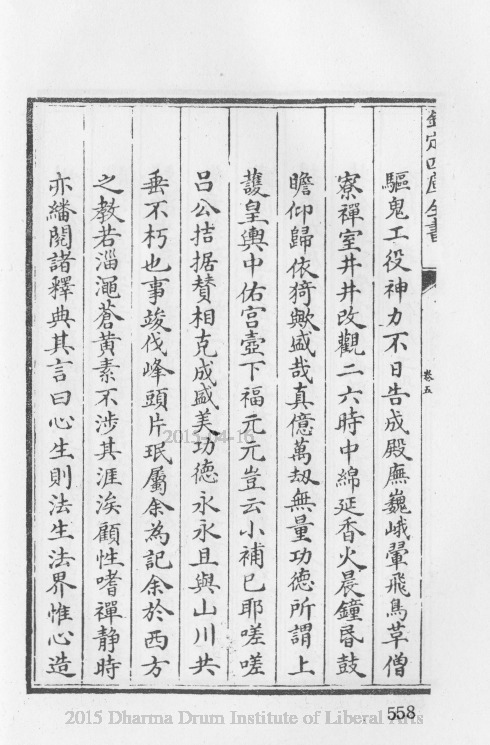 欽定四庫全書
卷五
驅鬼工役神力不日告成殿廡巍峨翬飛鳥革僧
寮禪室井井改觀二六時中綿延香火晨鐘昏鼓
瞻仰歸依猗歟盛哉真億萬刼無量功德所謂上
護皇輿中佑宫壼下福元元豈云小補已耶嗟嗟
吕公拮据賛相克成盛美功德永永且與山川共
垂不朽也事竣伐峰頭片珉屬余為記余於西方
之教若淄澠蒼黄素不涉其涯涘顧性嗜禪静時
亦繙閲諸釋典其言曰心生則法生法界惟心造
2015-04-16
558
2015 Dharma Drum Institute of Liberal Arts